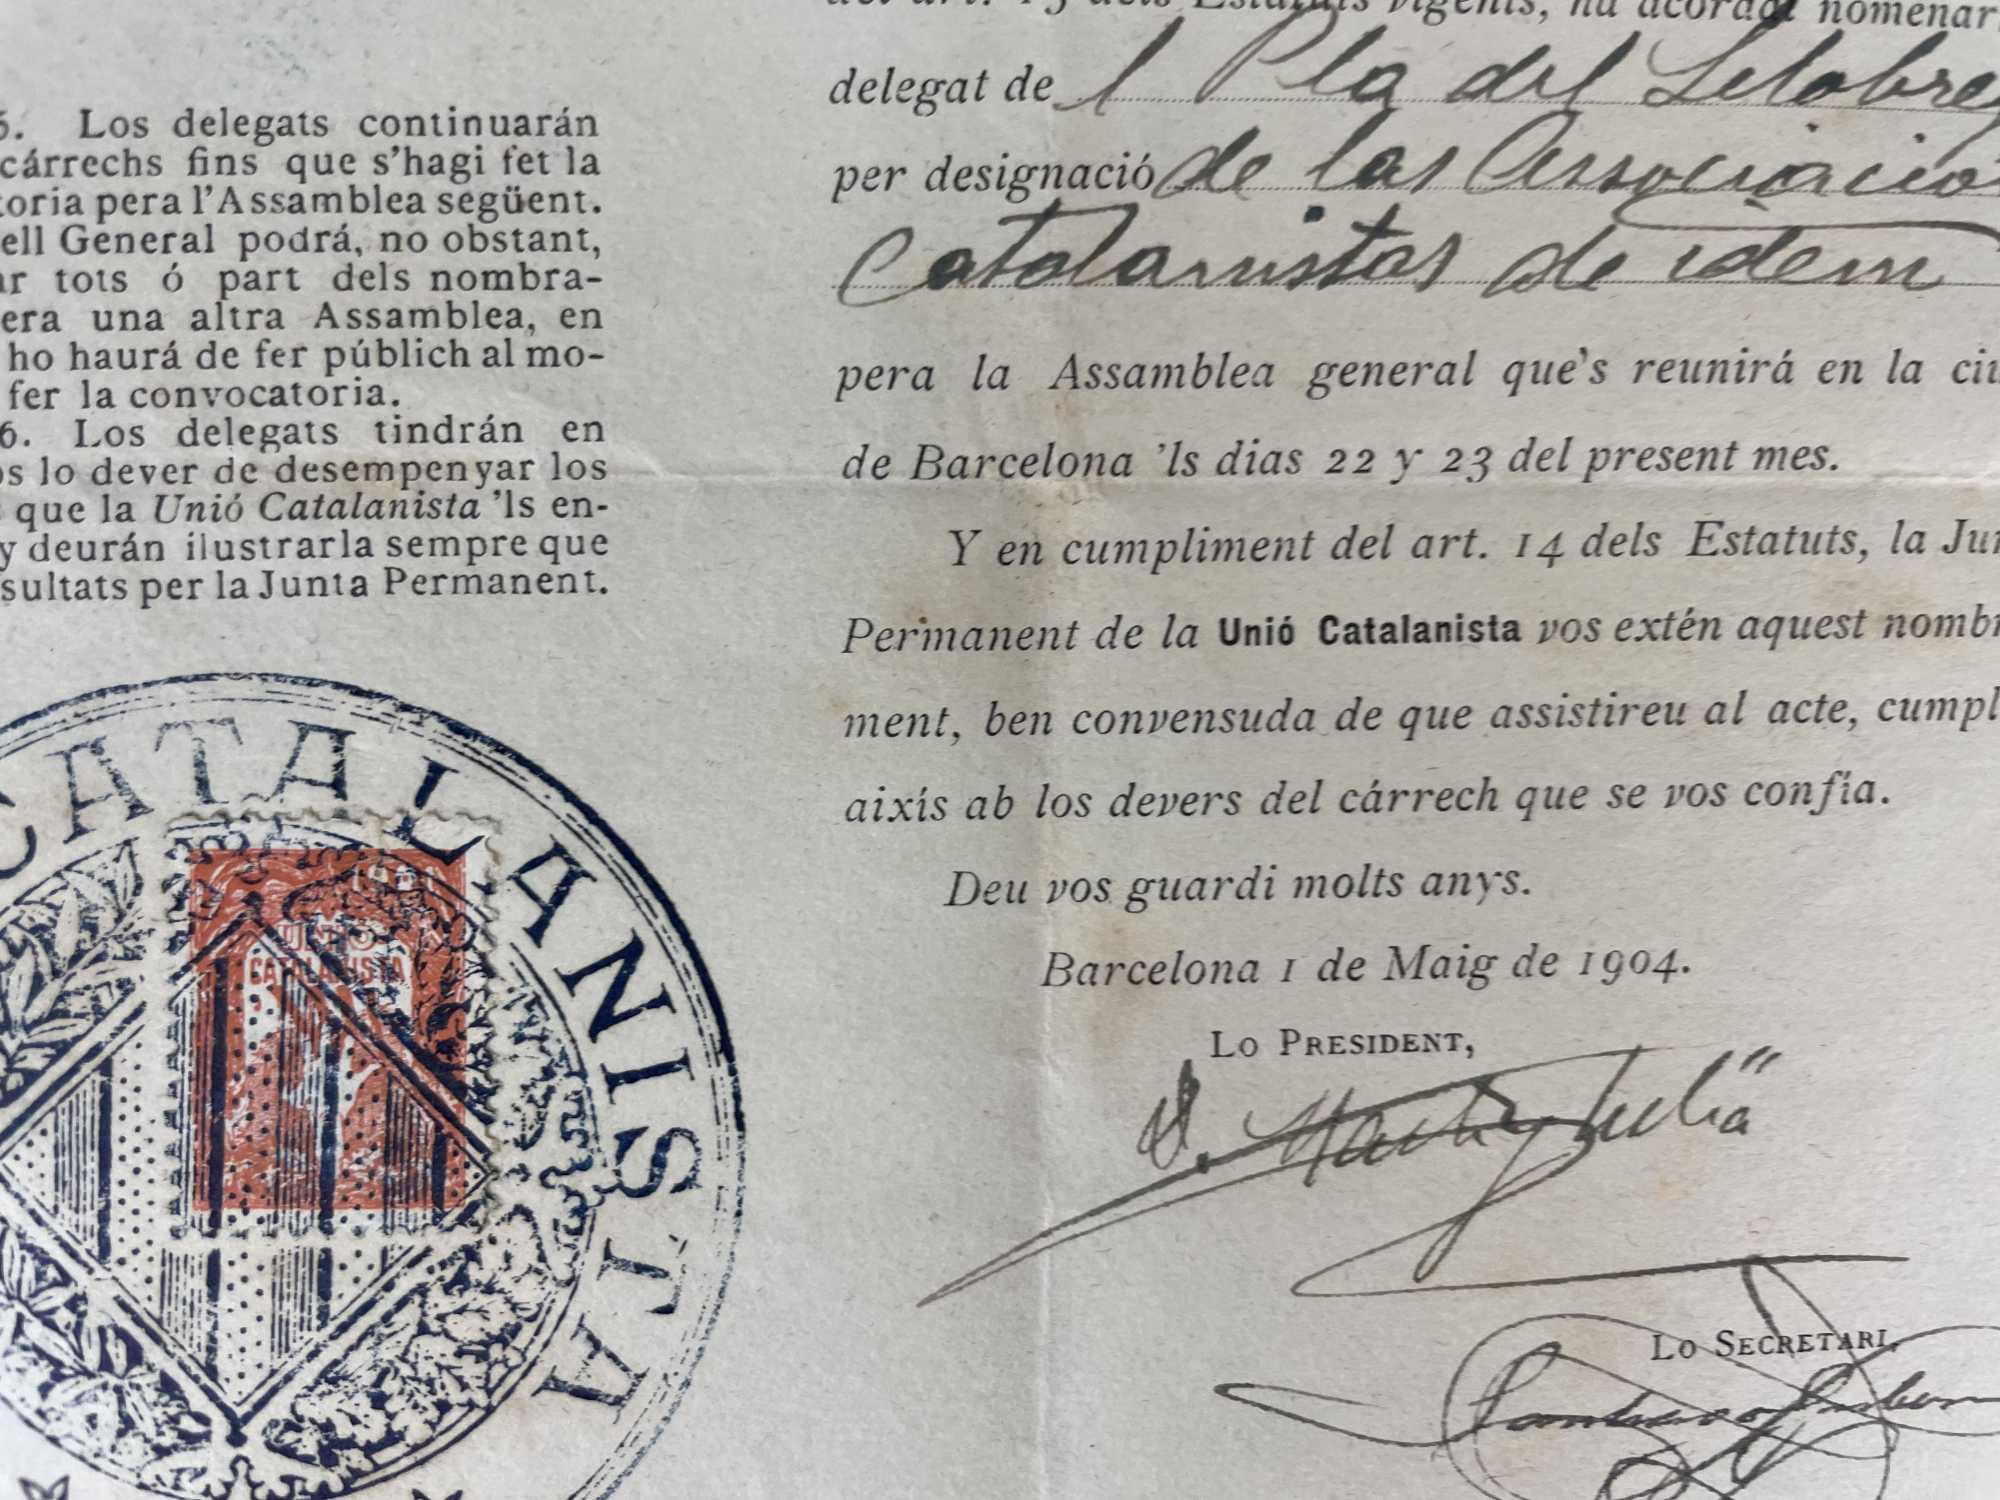 6. Los delegats continuarán
cárrechs fins que s'hagi fet la
toria pera l'Assamblea següent.
ell General podrá, no obstant,
ar tots ó part dels nombra-
era una altra Assamblea, en
ho haurá de fer públich al mo-
fer la convocatoria.
6. Los delegats tindrán en
os lo dever de desempenyar los
que la Unió Catalanista 'ls en-
y deurán ilustrarla sempre que
sultats per la Junta Permanent.
CATALANISTA
UNIÓ
CATALANISTA
del art. 13 dels Estatuts vigents, ha acordat nomenar
delegat de l Pla del Llobreg
per designació de las Associacio
Catalanistas de idem
pera la Assamblea general que's reunirá en la ciu
de Barcelona 'ls dias 22 y 23 del present mes.
Y en cumpliment del art. 14 dels Estatuts, la Jun
Permanent de la Unió Catalanista vos extén aquest nombr
ment, ben convensuda de que assistireu al acte, cumpl
aixís ab los devers del cárrech que se vos confía.
Deu vos guardi molts anys.
Barcelona 1 de Maig de 1904.
Lo President,
D. Martí y Juliá
Lo Secretari,